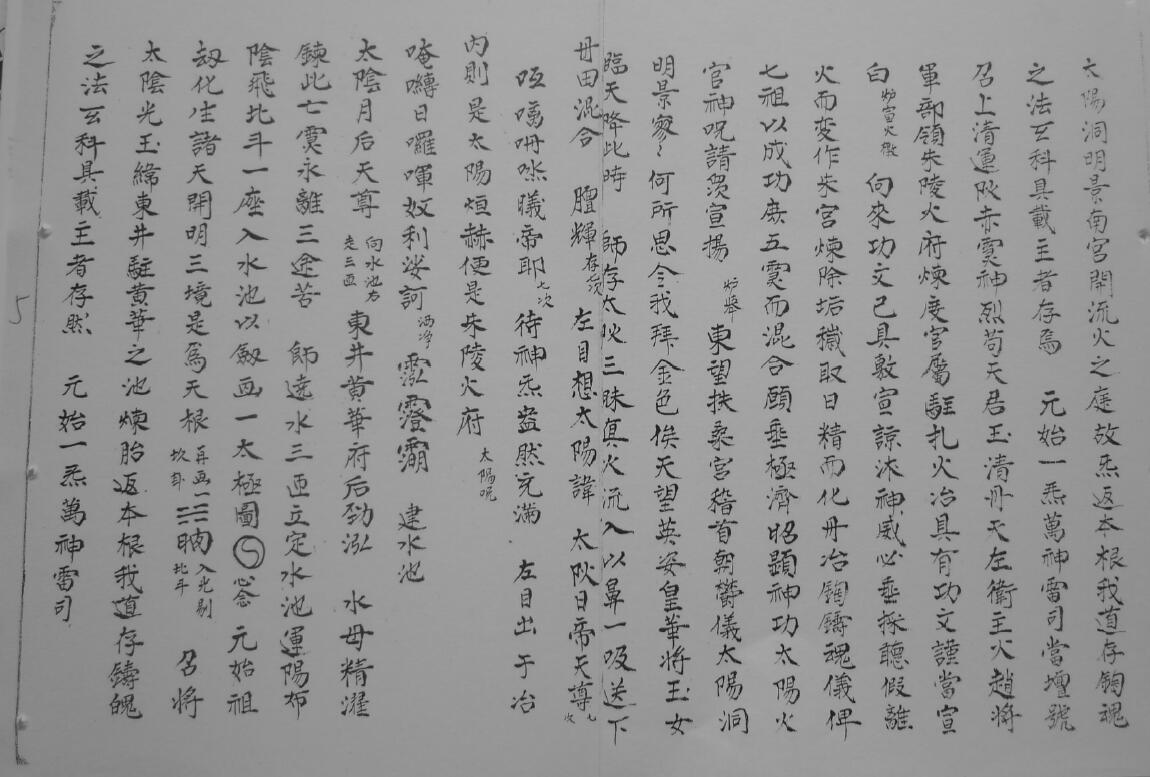 太陽洞明景南宮開流火之庭故炁返本根我道存鉤魂
之法玄科具載主者存焉　元始一炁萬神雷司當壇號
召上清運炏赤霛神烈荀天君玉清丹天左衛主火趙將
軍部領朱陵火府煉度官屬駐扎火冶具有功文謹當宣
白 炉宣火檄 向來功文已具敷宣諒沐神威必垂採聽假離
火而变作朱宮煉除垢穢取日精而化丹冶鉤鑄魂儀俾
七祖以成功庶五霛而混合願垂極濟昭顯神功太陽火
官神呪請須宣揚 東望扶桑宮稽首朝欝儀太陽洞
明景寥〻何所思今我拜金色俟天望英姿皇華將玉女
臨天降此時　師存太炏三昧真火流入以鼻一吸送下
丹田混合　膻輝 左目想太陽諱　太炏日帝天尊 九次
曦帝耶 七次 待神炁盎然充滿　左目出于冶
內則是太陽烜赫便是朱陵火府 太陽呪
唵嚩日囉㖷奴利娑訶 洒淨 建水池
太陰月后天尊 向水池右走三匝 東井黃華府后勁泓　水母精濯
鍊此七霛永離三途苦　師遶水三匝立定水池運陽布
陰飛北斗一座入水池以劔画一太極圖 念　元始祖
劫化生諸天開明三境是爲天根 再画一坎卦 ☵ 入光剔北斗 召將
太陰光玉綘東井駐黃華之池煉胎返本根我道存鑄魄
之法玄科具載主者存焉　元始一炁萬神雷司
5